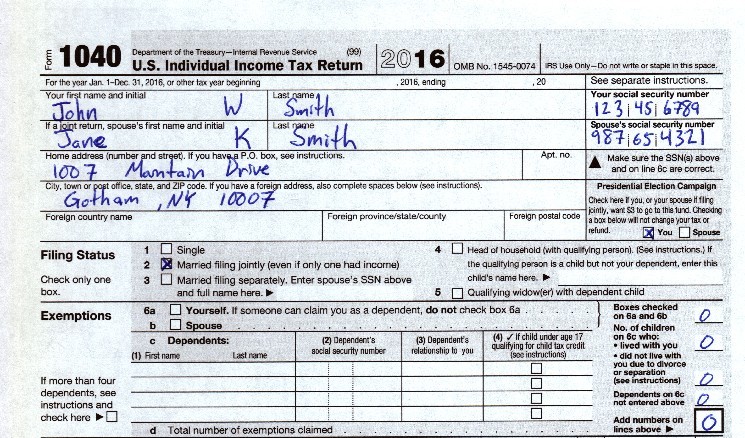 Form 1040 Department of the Treasury—Internal Revenue Service (99) U.S. Individual Income Tax Return 2016 OMB No. 1545-0074 IRS Use Only—Do not write or staple in this space.
For the year Jan. 1–Dec. 31, 2016, or other tax year beginning , 2016, ending , 20 See separate instructions.
Your first name and initial Last name Your social security number
John W Smith 123 45 6789
If a joint return, spouse's first name and initial Last name Spouse's social security number
Jane K Smith 987 65 4321
Home address (number and street). If you have a P.O. box, see instructions. Apt. no.
1007 Mantain Drive
▲ Make sure the SSN(s) above and on line 6c are correct.
City, town or post office, state, and ZIP code. If you have a foreign address, also complete spaces below (see instructions).
Gotham, NY 10007
Foreign country name Foreign province/state/county Foreign postal code
Presidential Election Campaign
Check here if you, or your spouse if filing
jointly, want $3 to go to this fund. Checking
a box below will not change your tax or
refund. X You Spouse
Filing Status
Check only one
box.
1 Single
2 X Married filing jointly (even if only one had income)
3 Married filing separately. Enter spouse's SSN above
and full name here. ▶
4 Head of household (with qualifying person). (See instructions.) If
the qualifying person is a child but not your dependent, enter this
child's name here. ▶
5 Qualifying widow(er) with dependent child
Exemptions
6a Yourself. If someone can claim you as a dependent, do not check box 6a
b Spouse
c Dependents:
(1) First name Last name
(2) Dependent's
social security number
(3) Dependent's
relationship to you
(4) ✓ if child under age 17
qualifying for child tax credit
(see instructions)
If more than four
dependents, see
instructions and
check here ▶
d Total number of exemptions claimed
Boxes checked
on 6a and 6b 0
No. of children
on 6c who:
• lived with you 0
• did not live with
you due to divorce
or separation
(see instructions) 0
Dependents on 6c
not entered above 0
Add numbers on
lines above ▶ 0